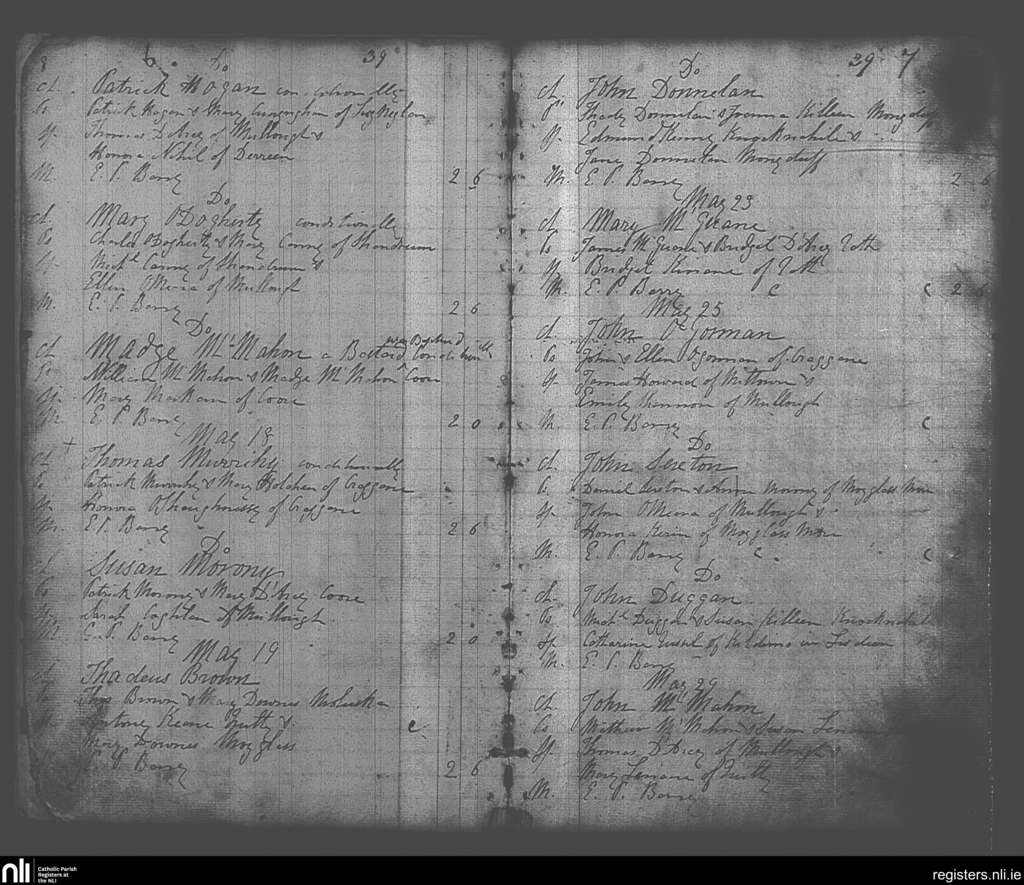 8 6. 39
Do
Ch. Patrick Hogan conditionally
Ps Patrick Hogan & Mary Cunningham of
Sp. Thomas D'Arcy of Mullough &
Honora Nihil of Derreen
M. E. P. Barry 2 6
Do
Ch. Mary O'Dogherty conditionally
Ps Charles O'Dogherty & Mary Canny of Shandrum
Sp. Michl Canny of Shandrum &
Ellen O'Meara of Mullough
M. E. P. Barry 2 6
Do
Ch. Madge McMahon a Bastard conditionally
Ps William McMahon & Madge McMahon Coore
Sp. Mary Markam of Coore
M. E. P. Barry 2 0
May 18
+
Ch. Thomas Murrihy conditionally
Ps Patrick Murrihy & Mary of Craggane
Sp. Honora O'Shaughnessy of Craggane
M. E. P. Barry 2 6
Do
Ch. Susan Morony
Ps Patrick Morony & Mary D'Arcy Coore
Sp. Sarah Coghlan of Mullough
M. E. P. Barry 2 0
May 19
Ch. Thadeus Brown
Ps Thos Brown & Mary Downes
Keane Quilty & C
Mary Downes Moyglass
E. P. Barry 2 6
39 7
Do
Ch. John Donnelan
Ps Thady Donnelan & Joanna Killeen
Sp. Edmund Kenny &
Jane Donnelan
M. E. P. Barry 2 6
May 23
Ch. Mary McGuane
Ps James McGuane & Bridget D'Arcy Toth
Sp. Bridget Kinane of Toth
M. E. P. Barry C C 2 6
May 25
Ch. John O'Gorman
Ps John & Ellen O'Gorman of Craggane
Sp. James Howard of Miltown &
Emily Shannon of Mullough
M. E. P. Barry C
Do
Ch. John Sexton
Ps Daniel Sexton & Anne Morony of Moyglass More
Sp. John O'Meara of Mullough &
Honora of Moyglass More
M. E. P. Barry C C 2
Do
Ch. John Duggan
Ps Michl Duggan & Susan Killeen
Sp. Catharine of
M. E. P. Barry
May 29
Ch. John McMahon
Ps Mathew McMahon & Susan
Sp. Thomas D'Arcy of Mullough &
Mary of Quilty
M. E. P. Barry
nli Catholic Parish
Registers at
the NLI
registers.nli.ie